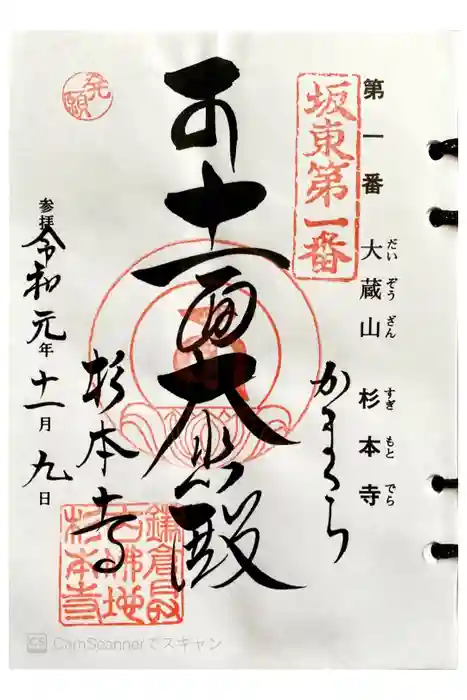 第一番 大蔵山 杉本寺
だい ぞう ざん すぎ もと でら
坂東第一番
かまくら
十一面大悲殿
発願
杉本寺
参拝 令和元年十一月九日
杉本寺
CS CamScannerでスキャン